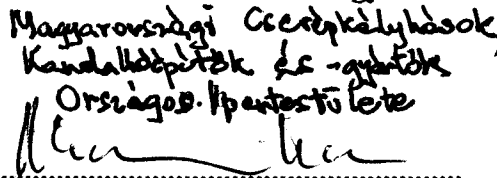 Magyarországi Cserépkályhások,
Kandallóépítők és -gyártók
Országos Ipartestülete